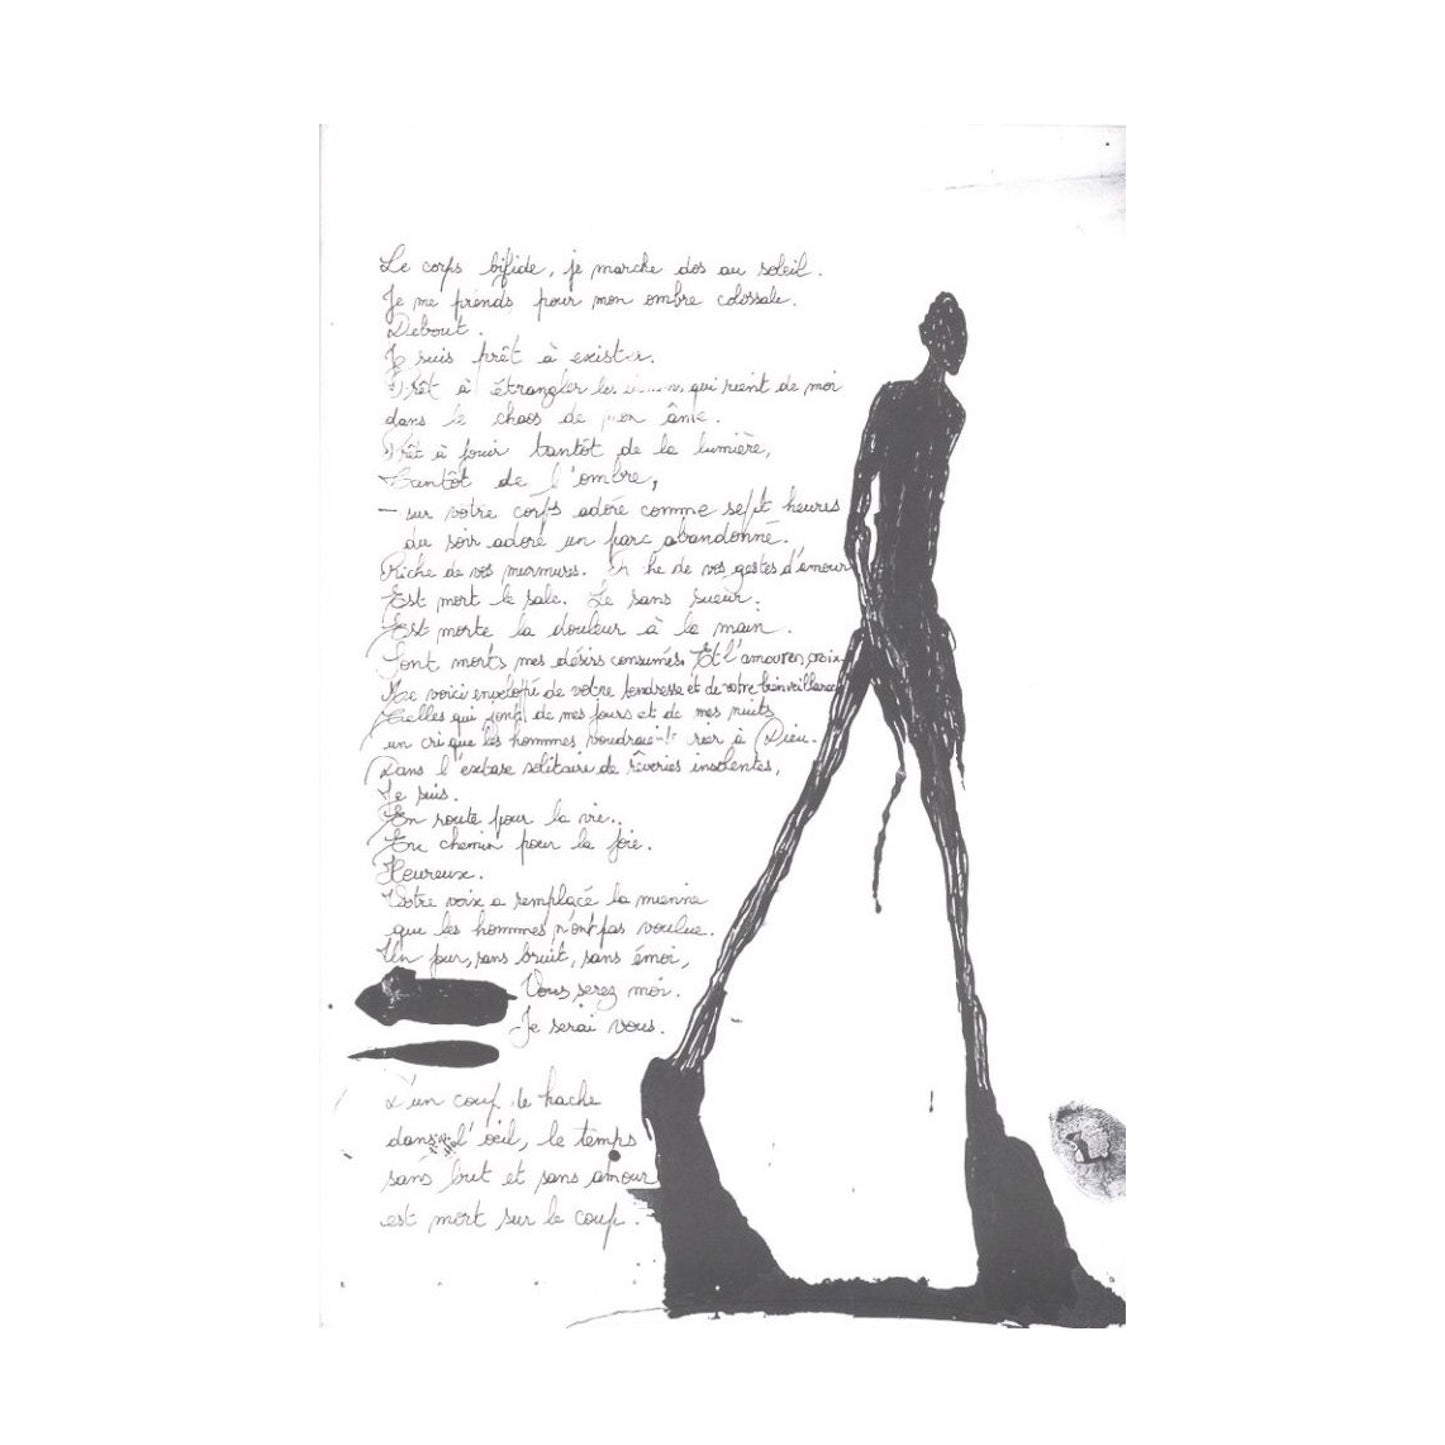 Le corps bifide, je marche dos au soleil.
Je me prends pour mon ombre colossale.
Debout.
Je suis prêt à exister.
Prêt à étrangler les qui rient de moi
dans le chaos de mon âme.
Prêt à jouir tantôt de la lumière,
tantôt de l'ombre,
— sur votre corps adoré comme sept heures
du soir adoré un parc abandonné.
Riche de vos murmures. Riche de vos gestes d'amour
Est mort le sale. Le sans sueur.
Est morte la douleur à la main.
Sont morts mes désirs consumés. Et l'amour en croix.
Me voici enveloppé de votre tendresse et de votre bienveillance
Celles qui font de mes jours et de mes nuits
un cri que les hommmes voudraient crier à Dieu.
Dans l'extase solitaire de rêveries insolentes,
Je suis.
En route pour la vie..
En chemin pour la joie.
Heureux.
Votre voix a remplacé la mienne
que les hommmes n'ont pas voulue.
Un jour, sans bruit, sans émoi,
Vous serez moi.
Je serai vous.
D'un coup de hache
dans l'oeil, le temps
sans but et sans amour
est mort sur le coup.